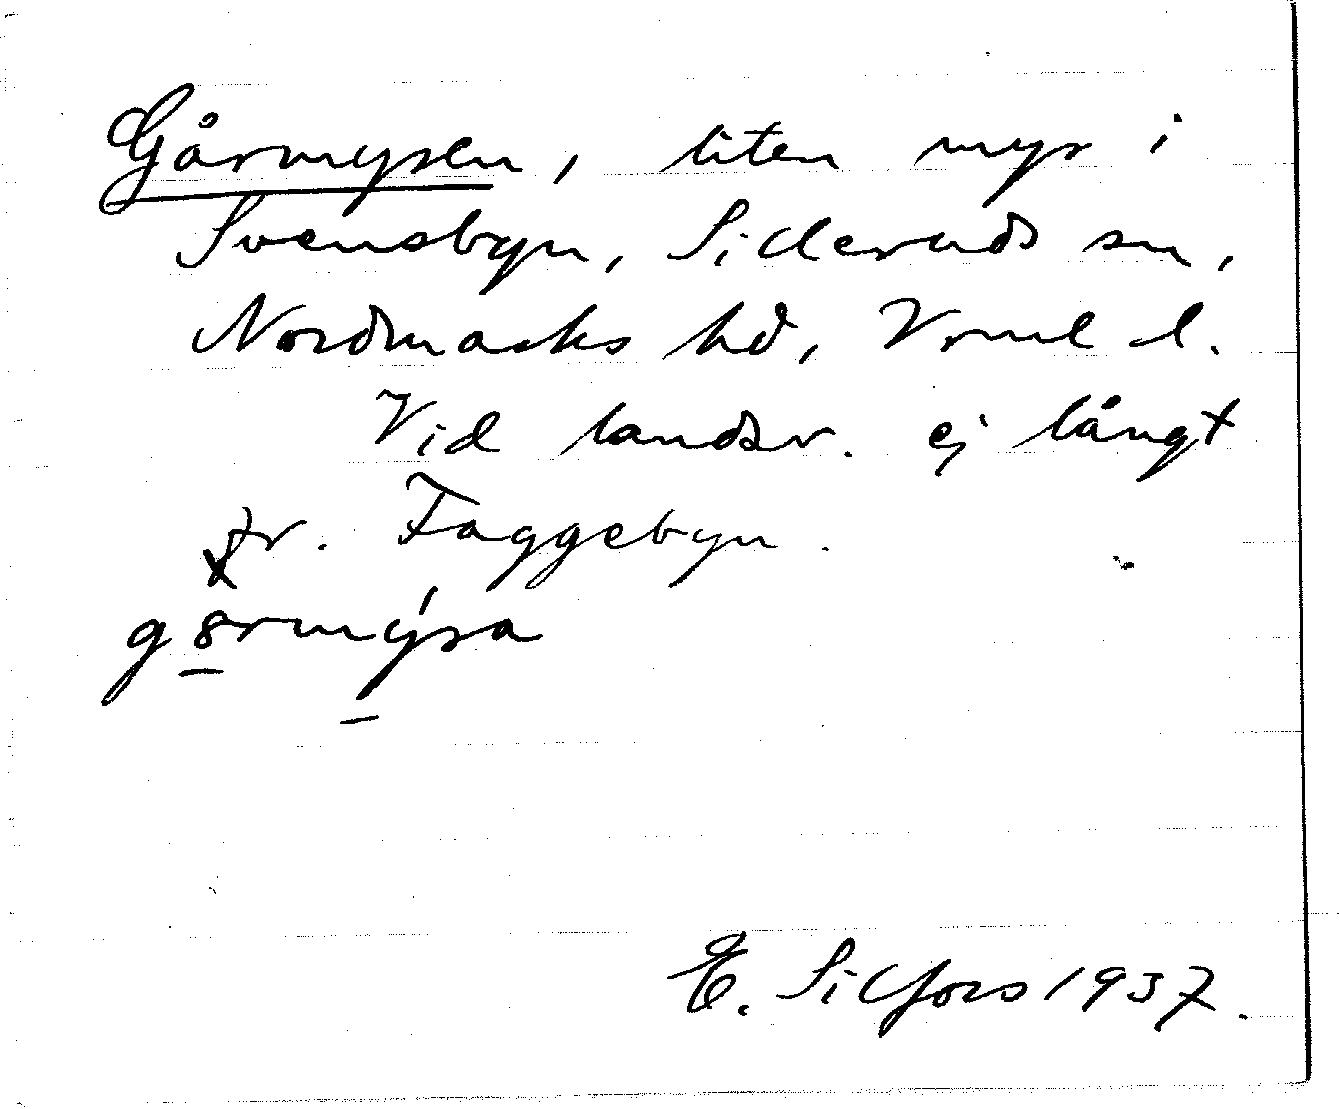 Gårmysen, liten myr i
Svensbyn, Silleruds sn,
Nordmarks hd, Vrml d.
Vid landsv. ej långt
fr. Faggebyn.
g8rmýsa
E. Silfors 1937.